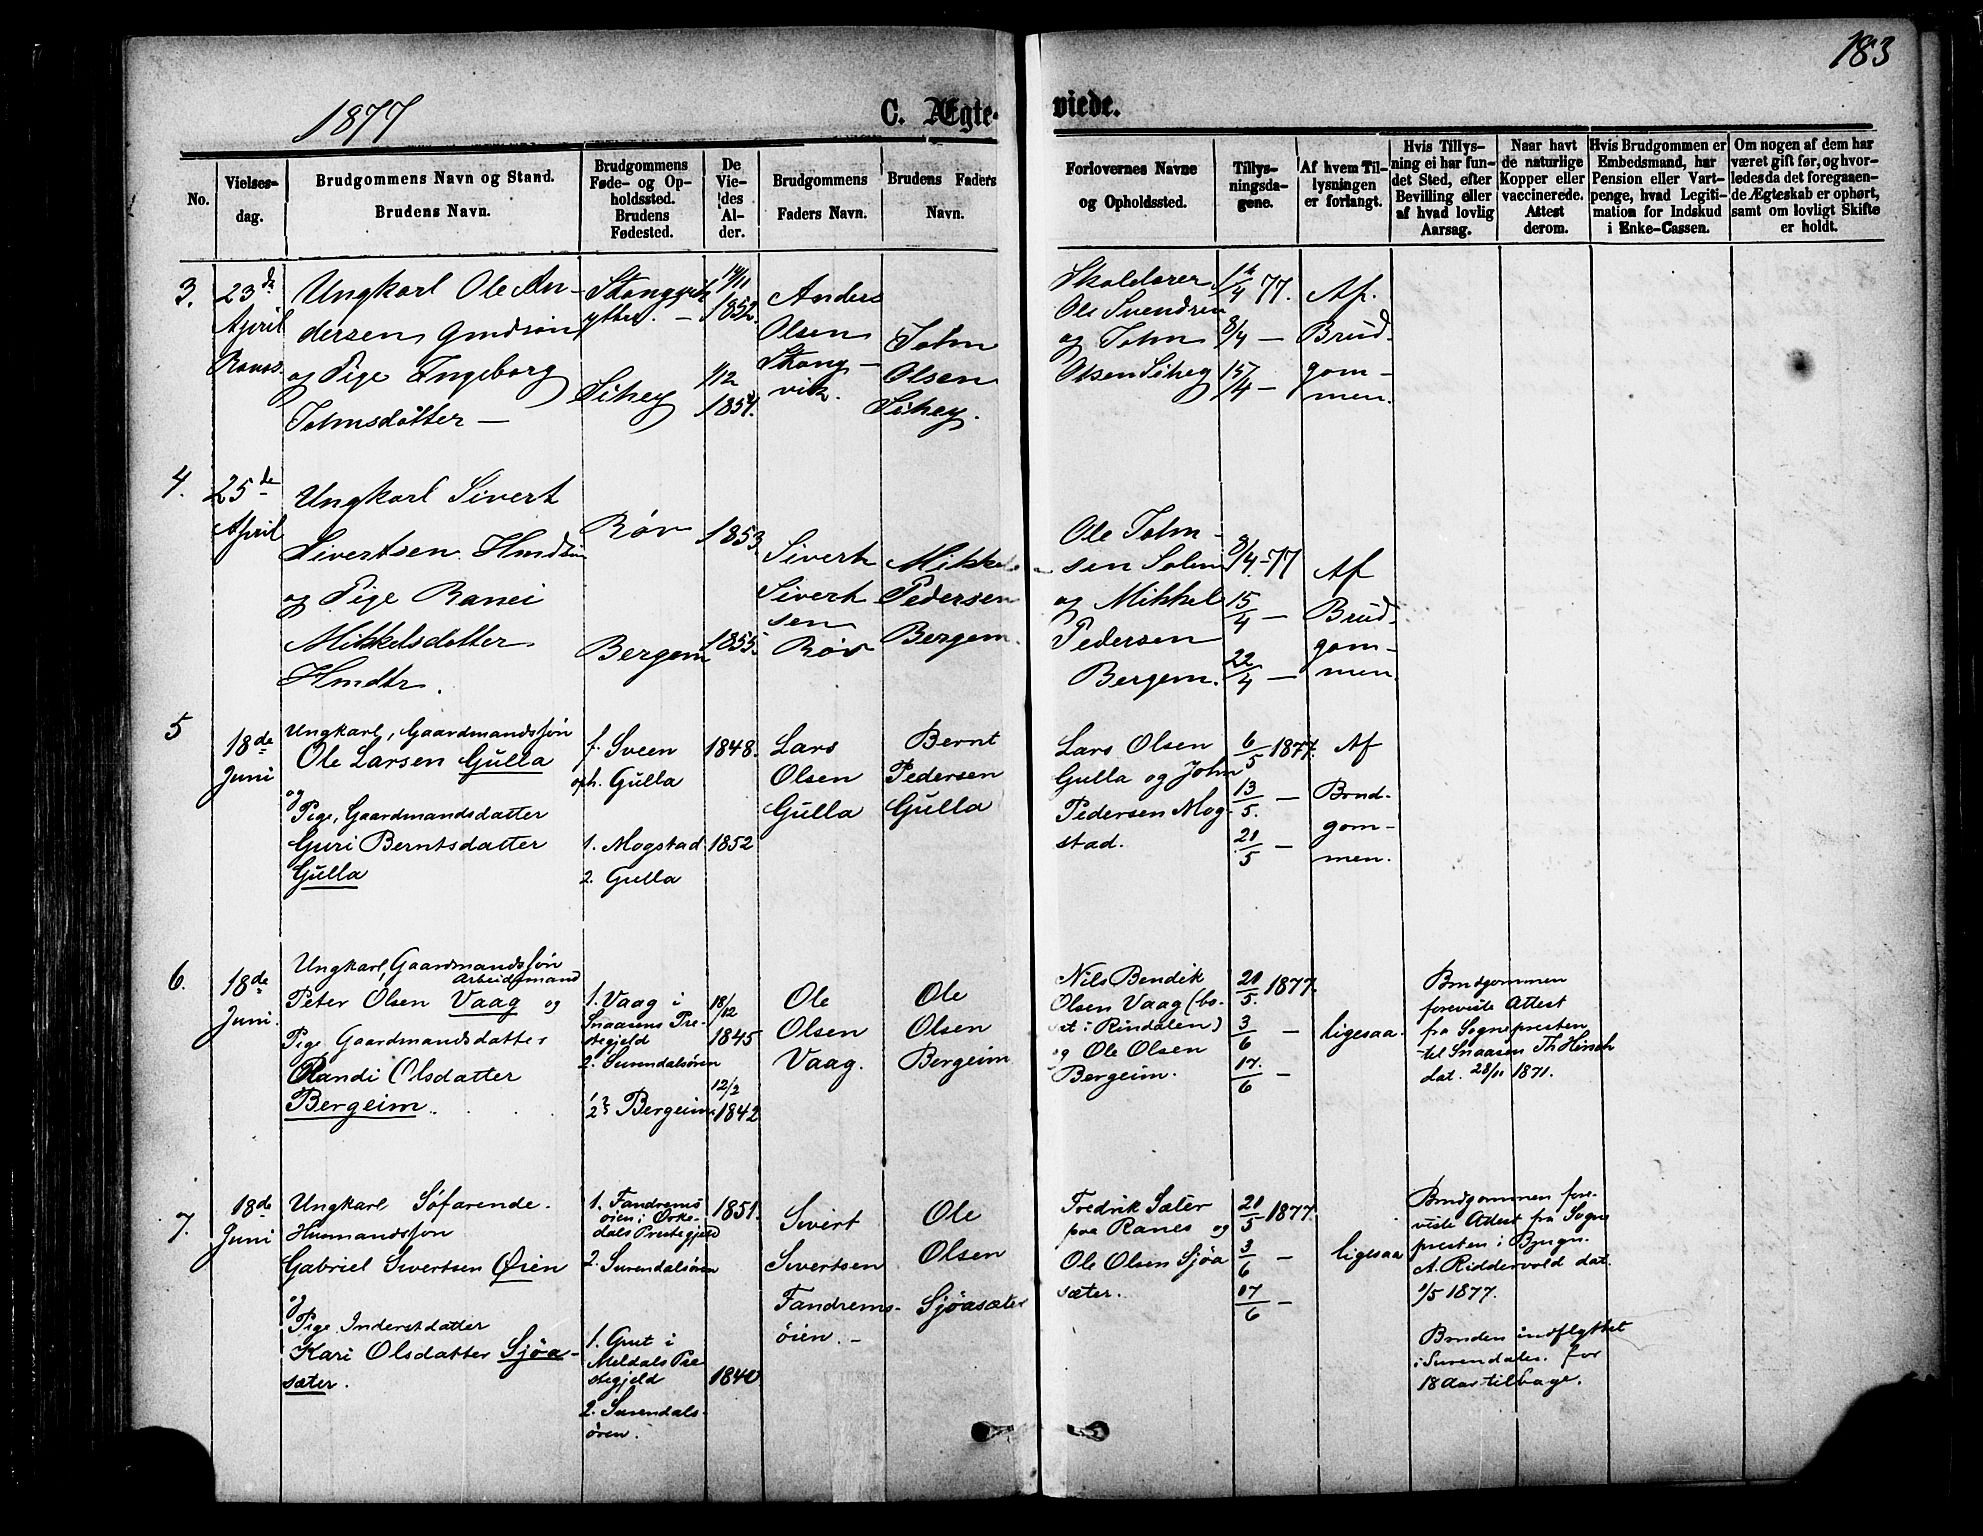 183
1877
C. Ægte-
viede.
No.
Vielses-
dag.
Brudgommens Navn og Stand.
Brudens Navn.
Brudgommens
Føde- og Op-
holdssted.
Brudens
Fødested.
De
Vie-
des
Al-
der.
Brudgommens
Faders Navn.
Brudens Faders
Navn.
Forlovernes Navne
og Opholdssted.
Tillys-
ningsda-
gene.
Af hvem Til-
lysningen
er forlangt.
Hvis Tillys-
ning ei har fun-
det Sted, efter
Bevilling eller
af hvad lovlig
Aarsag.
Naar havt
de naturlige
Kopper eller
vaccinerede.
Attest
derom.
Hvis Brudgommen er
Embedsmand, har
Pension eller Vart-
penge, hvad Legiti-
mation for Indskud
i Enke-Cassen.
Om nogen af dem har
været gift før, og hvor-
ledes da det foregaaen-
de Ægteskab er ophørt,
samt om lovligt Skifte
er holdt.
3.
23de
April
Ranes.
Ungkarl Ole An-
dersen Gmdsøn
og Pige Ingeborg
Johnsdatter —
Stangvik
ytter. —
Sihey
1852.
1/12
1854.
Anders
Olsen
Stang-
vik.
John
Olsen
Sihey.
Skoldlærer
Ole Svendsen
og John
Olsen Sihey
1/4 77.
8/4 —
15/4 —
Af
Brud-
gom-
men.
4.
25de
April
Ungkarl Sivert
Sivertsen Hmdsøn
og Pige Ranei
Mikkelsdatter
Hmdtr.
Røv
Bergem
1853.
1855.
Sivert
Sivert
sen
Røv
Mikkel
Pedersen
Bergem.
Ole John-
sen Solem
og Mikkel
Pedersen
Bergem.
8/4 - 77
15/4 —
22/4 —
Af
Brud-
gom-
men.
5
18de
Juni
Ungkarl, Gaardmandssøn
Ole Larsen Gulla
og
Pige, Gaardmandsdatter
Guri Berntsdatter
Gulla
f. Sveen
oph. Gulla
1. Mogstad
2. Gulla
1848.
1852
Lars
Olsen
Gulla
Bernt
Pedersen
Gulla
Lars Olsen
Gulla og John
Pedersen Mog-
stad.
6/5 1877.
13/5. —
21/5 —
Af
Brud-
gom-
men.
6.
18de
Juni.
Ungkarl, Gaardmandssøn
Arbeidsmand
Peter Olsen Vaag og
Pige Gaardmandsdatter
Randi Olsdatter
Bergeim.
1. Vaag i
Snaasens Pre-
stegjeld
2. Surendalsøren
1 & 2 Bergeim.
18/12
1845
12/2
1842
Ole
Olsen
Vaag.
Ole
Olsen
Bergeim
Nils Bendik
Olsen Vaag (bo-
sat i Rindalen)
og Ole Olsen
Bergeim.
21/5. 1877.
3/6 —
17./6 —
ligesaa.
Brudgommen
foreviste Attest
fra Sognepresten
til Snaasen Th Hirsch
dat. 28/11 1871.
7.
18de
Juni
Ungkarl Søfarende.
Husmandssøn
Gabriel Sivertsen Øien
og
Pige Inderstdatter
Kari Olsdatter Sjøa-
sæter.
1. Fandrems
øien i Orke-
dals Prestegjeld
2. Surendalsøren
1. Grut i
Meldals Pre
stegjeld
2. Surendals-
øren.
1851.
1840
Sivert
Sivertsen
Fandrems-
øien. —
Ole
Olsen
Sjøasæter
Fredrik Sæter
paa Ranes og
Ole Olsen Sjøa
sæter.
21/5 1877.
3/6 —
17/6 —
ligesaa
Brudgommen fore-
viste Attest fra Sogne
presten i Bjugn.
A. Riddervold dat.
1/5 1877.
Bruden indflyttet
i Surendalen for
18 Aar tilbage.